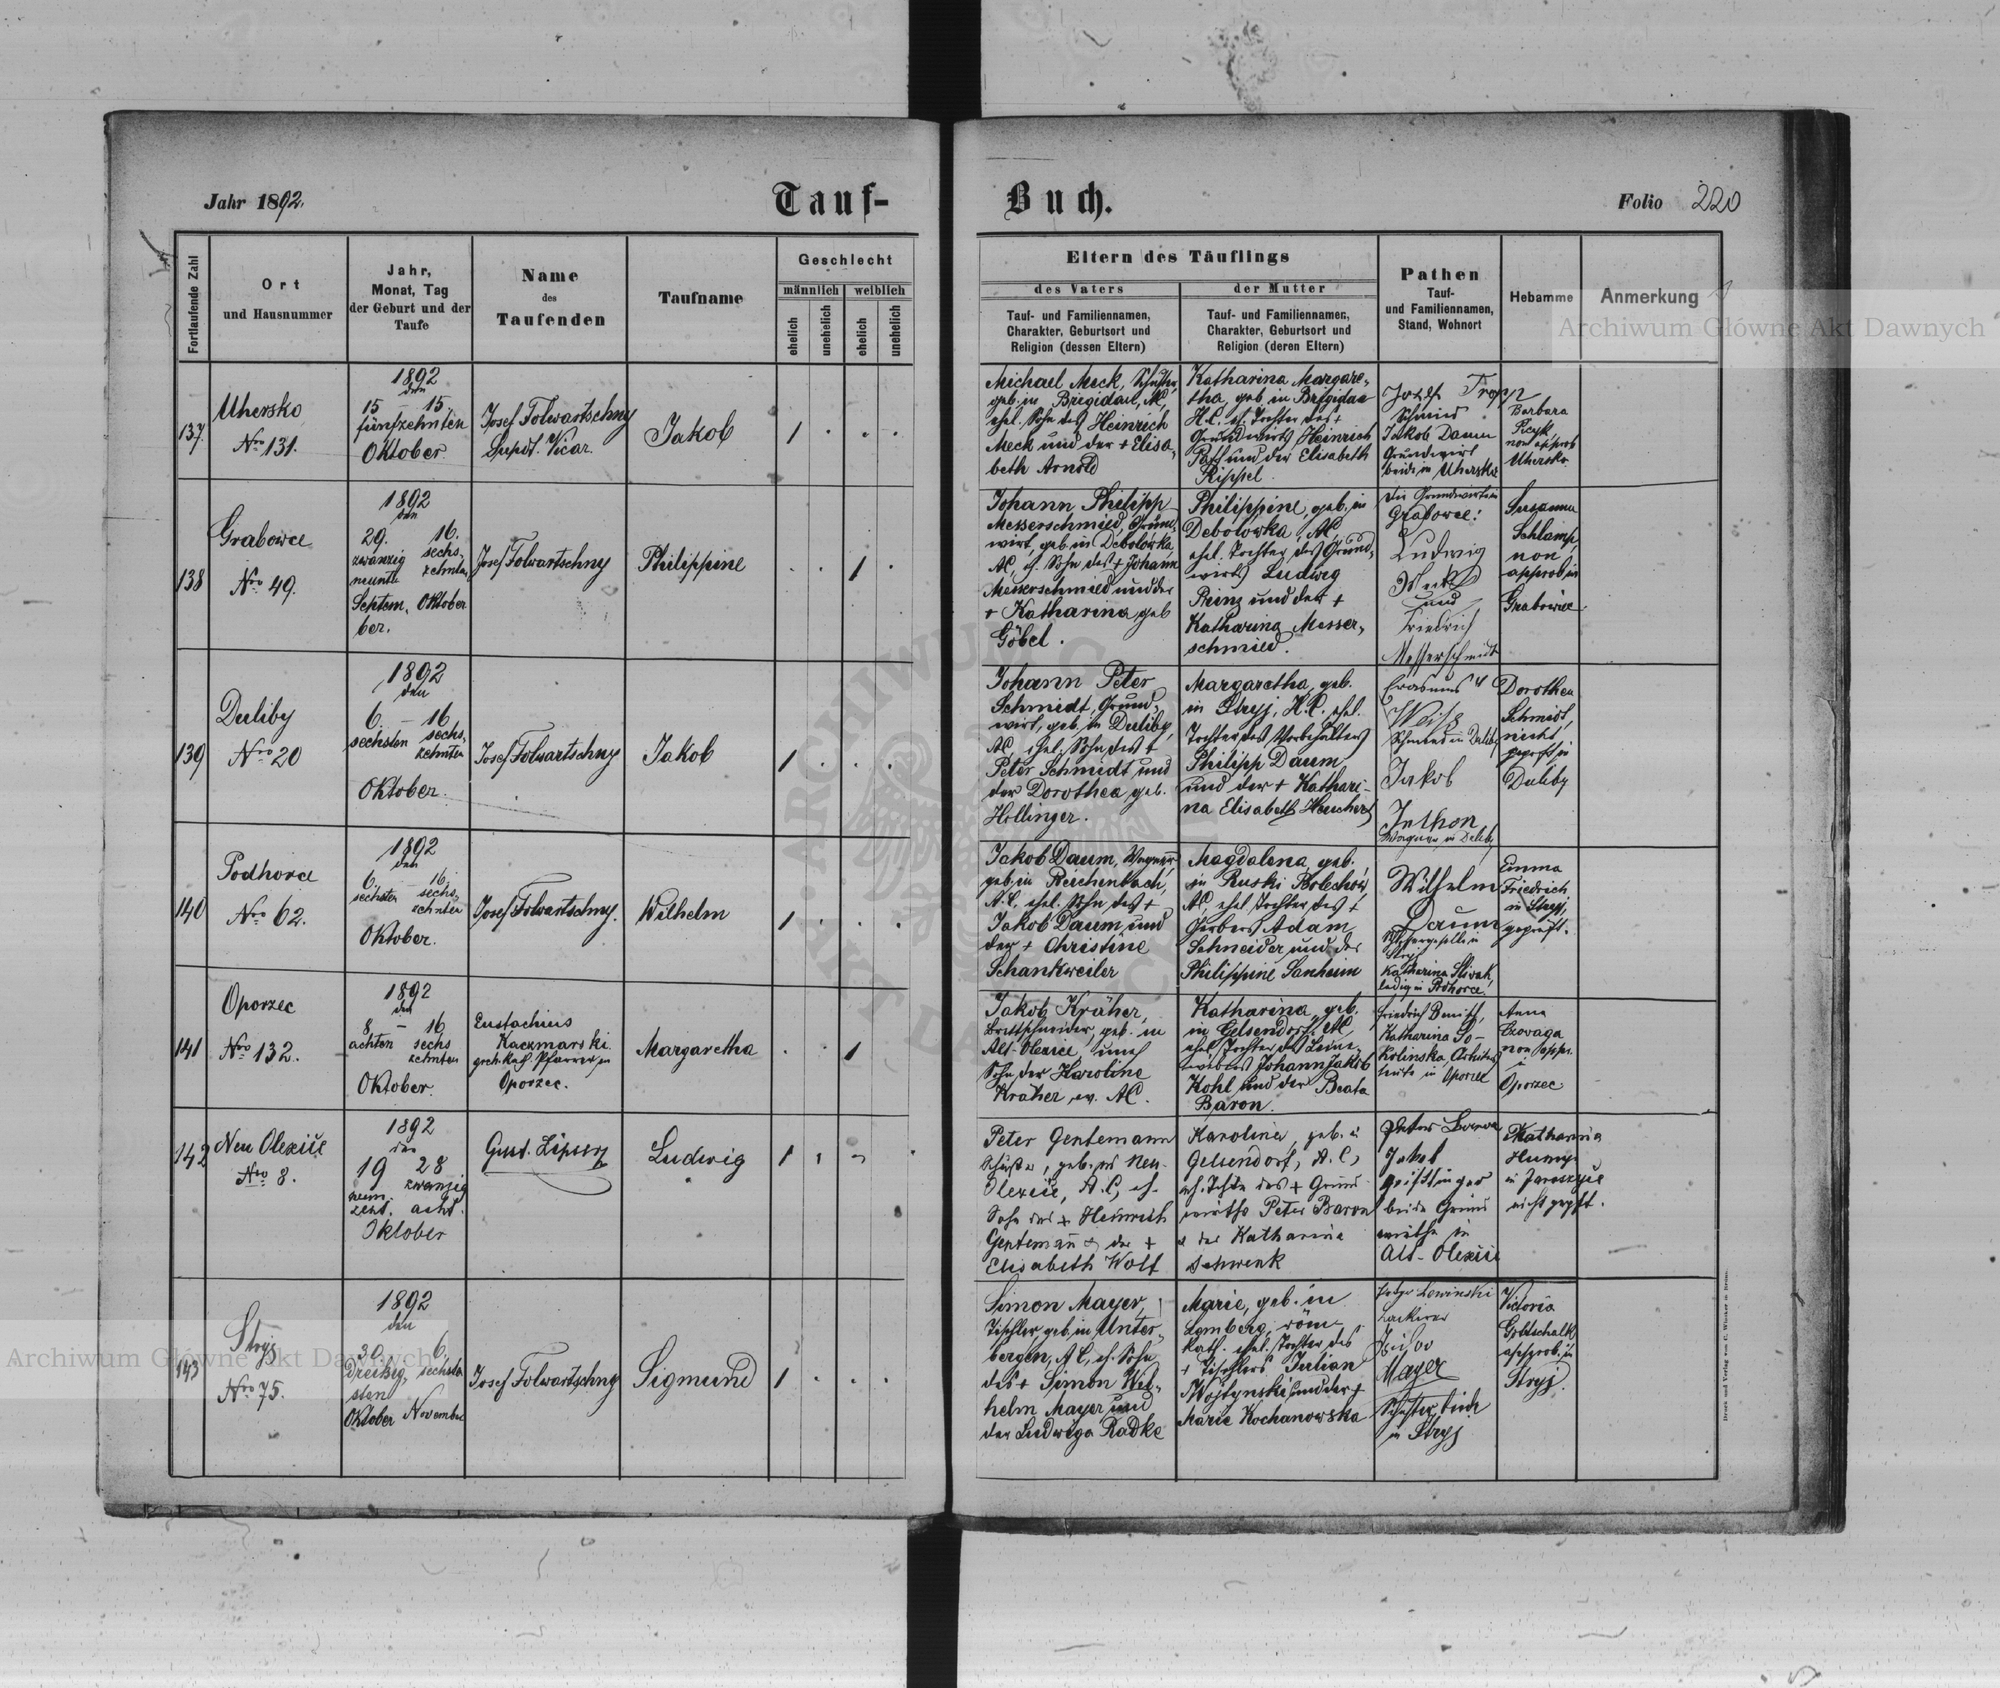 Jahr 1892.
Tauf-
Buch.
Folio 220
Fortlaufende Zahl
Ort
und Hausnummer
Jahr,
Monat, Tag
der Geburt und der
Taufe
Name
des
Taufenden
Taufname
Geschlecht
männlich
weiblich
ehelich
unehelich
ehelich
unehelich
Eltern des Täuflings
des Vaters
Tauf- und Familiennamen,
Charakter, Geburtsort und
Religion (dessen Eltern)
der Mutter
Tauf- und Familiennamen,
Charakter, Geburtsort und
Religion (deren Eltern)
Pathen
Tauf-
und Familiennamen,
Stand, Wohnort
Hebamme
Anmerkung
137.
Uhersko
Nro 131.
1892
den
15 15
fünfzehnten
Oktober
Josef Folwartschny
Supdt. Vicar.
Jakob
1
Michael Meck,
geb. in Brigidau, AC
ehel. Sohn des Heinrich
Meck und der + Elisa-
beth Arnold
Katharina Margare-
tha, geb. in Brigidau
H.C. Tochter des
Grundwirts Heinrich
und der Elisabeth
Rippel
Josef Tropp
Schmied
Jakob Daum
Grundwirt
beide in Uhersko
Barbara
non approb
Uhersko
138
Grabowce
Nro 49.
1892
den
29. 16.
zwanzig sechs-
neunte zehnten
Septem- Oktober
ber.
Josef Folwartschny
Philippine
1
Johann Philipp
Messerschmied, Grund-
wirt, geb. in Debolówka
AC, eh. Sohn des + Johann
Messerschmied und der
+ Katharina geb
Göbel.
Philippine, geb. in
Debolówka, AC,
ehel. Tochter des Grund-
wirts Ludwig
Reinz und der +
Katharina Messer-
schmied.
die Grundwirte in
Grabowce:
Ludwig
und
Friedrich
Messerschmidt
Susanna
Schlamp
non
approb in
Grabowce
139
Duliby
Nro 20
1892
den
6. – 16
sechsten sechs-
zehnten
Oktober.
Josef Folwartschny
Jakob
1
Johann Peter
Schmidt, Grund-
wirt, geb. in Duliby,
AC, ehel. Sohn des +
Peter Schmidt und
der Dorothea geb.
Hollinger.
Margaretha, geb.
in Stryj, H.C. ehel.
Tochter des
Philipp Daum
und der + Kathari-
na Elisabeth
Erasmus
Weiss
Schmied in Duliby
Jakob
Wagner in Duliby
Dorothea
Schmidt,
nicht
geprüft in
Duliby
140
Podhorce
Nro 62.
1892
den
6. – 16.
sechsten sechs-
zehnten
Oktober.
Josef Folwartschny.
Wilhelm
1
Jakob Daum, Wagner
geb. in Reichenbach,
A.C. ehel. Sohn des +
Jakob Daum und
der + Christine
Schankweiler
Magdalena geb.
in Ruski Bolechów
AC, ehel. Tochter des +
Gerbers Adam
Schneider und der
Philippine Sanheim
Wilhelm
Daum
Stryj
Katharina
ledig in Podhorce.
Emma
Friedrich
in Stryj,
geprüft.
141
Oporzec
Nro 132.
1892
den
8 – 16
achten sechs
zehnten
Oktober.
Eustachius
Kaczmarski
grch. kath. Pfarrer in
Oporzec.
Margaretha
1
Jakob Kräher,
Brettschneider, geb. in
Alt-Olexice, uneh
Sohn der Karoline
Kräher, ev. AC.
Katharina, geb.
in Gelsendorf, AC
ehel. Tochter des Leine-
webers Johann Jakob
Kohl und der Beata
Baron.
Friedrich
Katharina
in Oporzec
Anna
non appr.
in
Oporzec
142
Neu Olexice
Nro 8.
1892
den
19 28
neun- zwanzig
zent. acht.
Oktober
Gust. Lipscy
Ludwig
1
Peter Gentemann
Schuster, geb. in Neu-
Olexice, A.C, eh.
Sohn des + Heinrich
Gentemann & der +
Elisabeth Wolf
Karolina, geb. in
Gelsendorf, A.C,
eh. Tochter des + Grund-
wirths Peter Baron
u der Katharine
Schwenk
Peter Baron
Jakob
beide Grund
wirthe in
Alt-Olexice
Katharina
in Jaroszyce
nicht geprft.
143
Stryj
Nro 75.
1892
den
30. 6.
Dreißig- sechsten
sten
Oktober November
Josef Folwartschny
Sigmund
1
Simon Mayer,
Tischler geb. in Unter-
bergen, AC, eh. Sohn
des + Simon Wil-
helm Mayer und
der Ludwiga Radke
Marie, geb. in
Lemberg, röm
kath. ehel. Tochter des
+ Tischlers Julian
Wojtynski und der +
Marie Kochanowska
Lewinski
Lackirer
Isidor
Mayer
Schuster, beide
in Stryj
Victoria
Gottschalk
approb. in
Stryj.
Druck und Verlag von C. Winiker in Brünn.
Archiwum Główne Akt Dawnych
Archiwum Główne Akt Dawnych